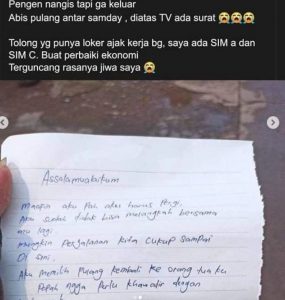 Pengen nangis tapi ga keluar
Abis pulang antar samday , diatas TV ada surat 😭😭😭
Tolong yg punya loker ajak kerja bg, saya ada SIM a dan
SIM C. Buat perbaiki ekonomi
Terguncang rasanya jiwa saya 😭
Assalamualaikum
aku Pak aku harus pergi.
Aku sudah tidak bisa melangkah bersama
mu lagi
mungkin Perjalanan kita cukup sampai
Di sini.
Aku memilih Pulang kembali ke orang tua ku
Bapak ngga Perlu khawatir dengan